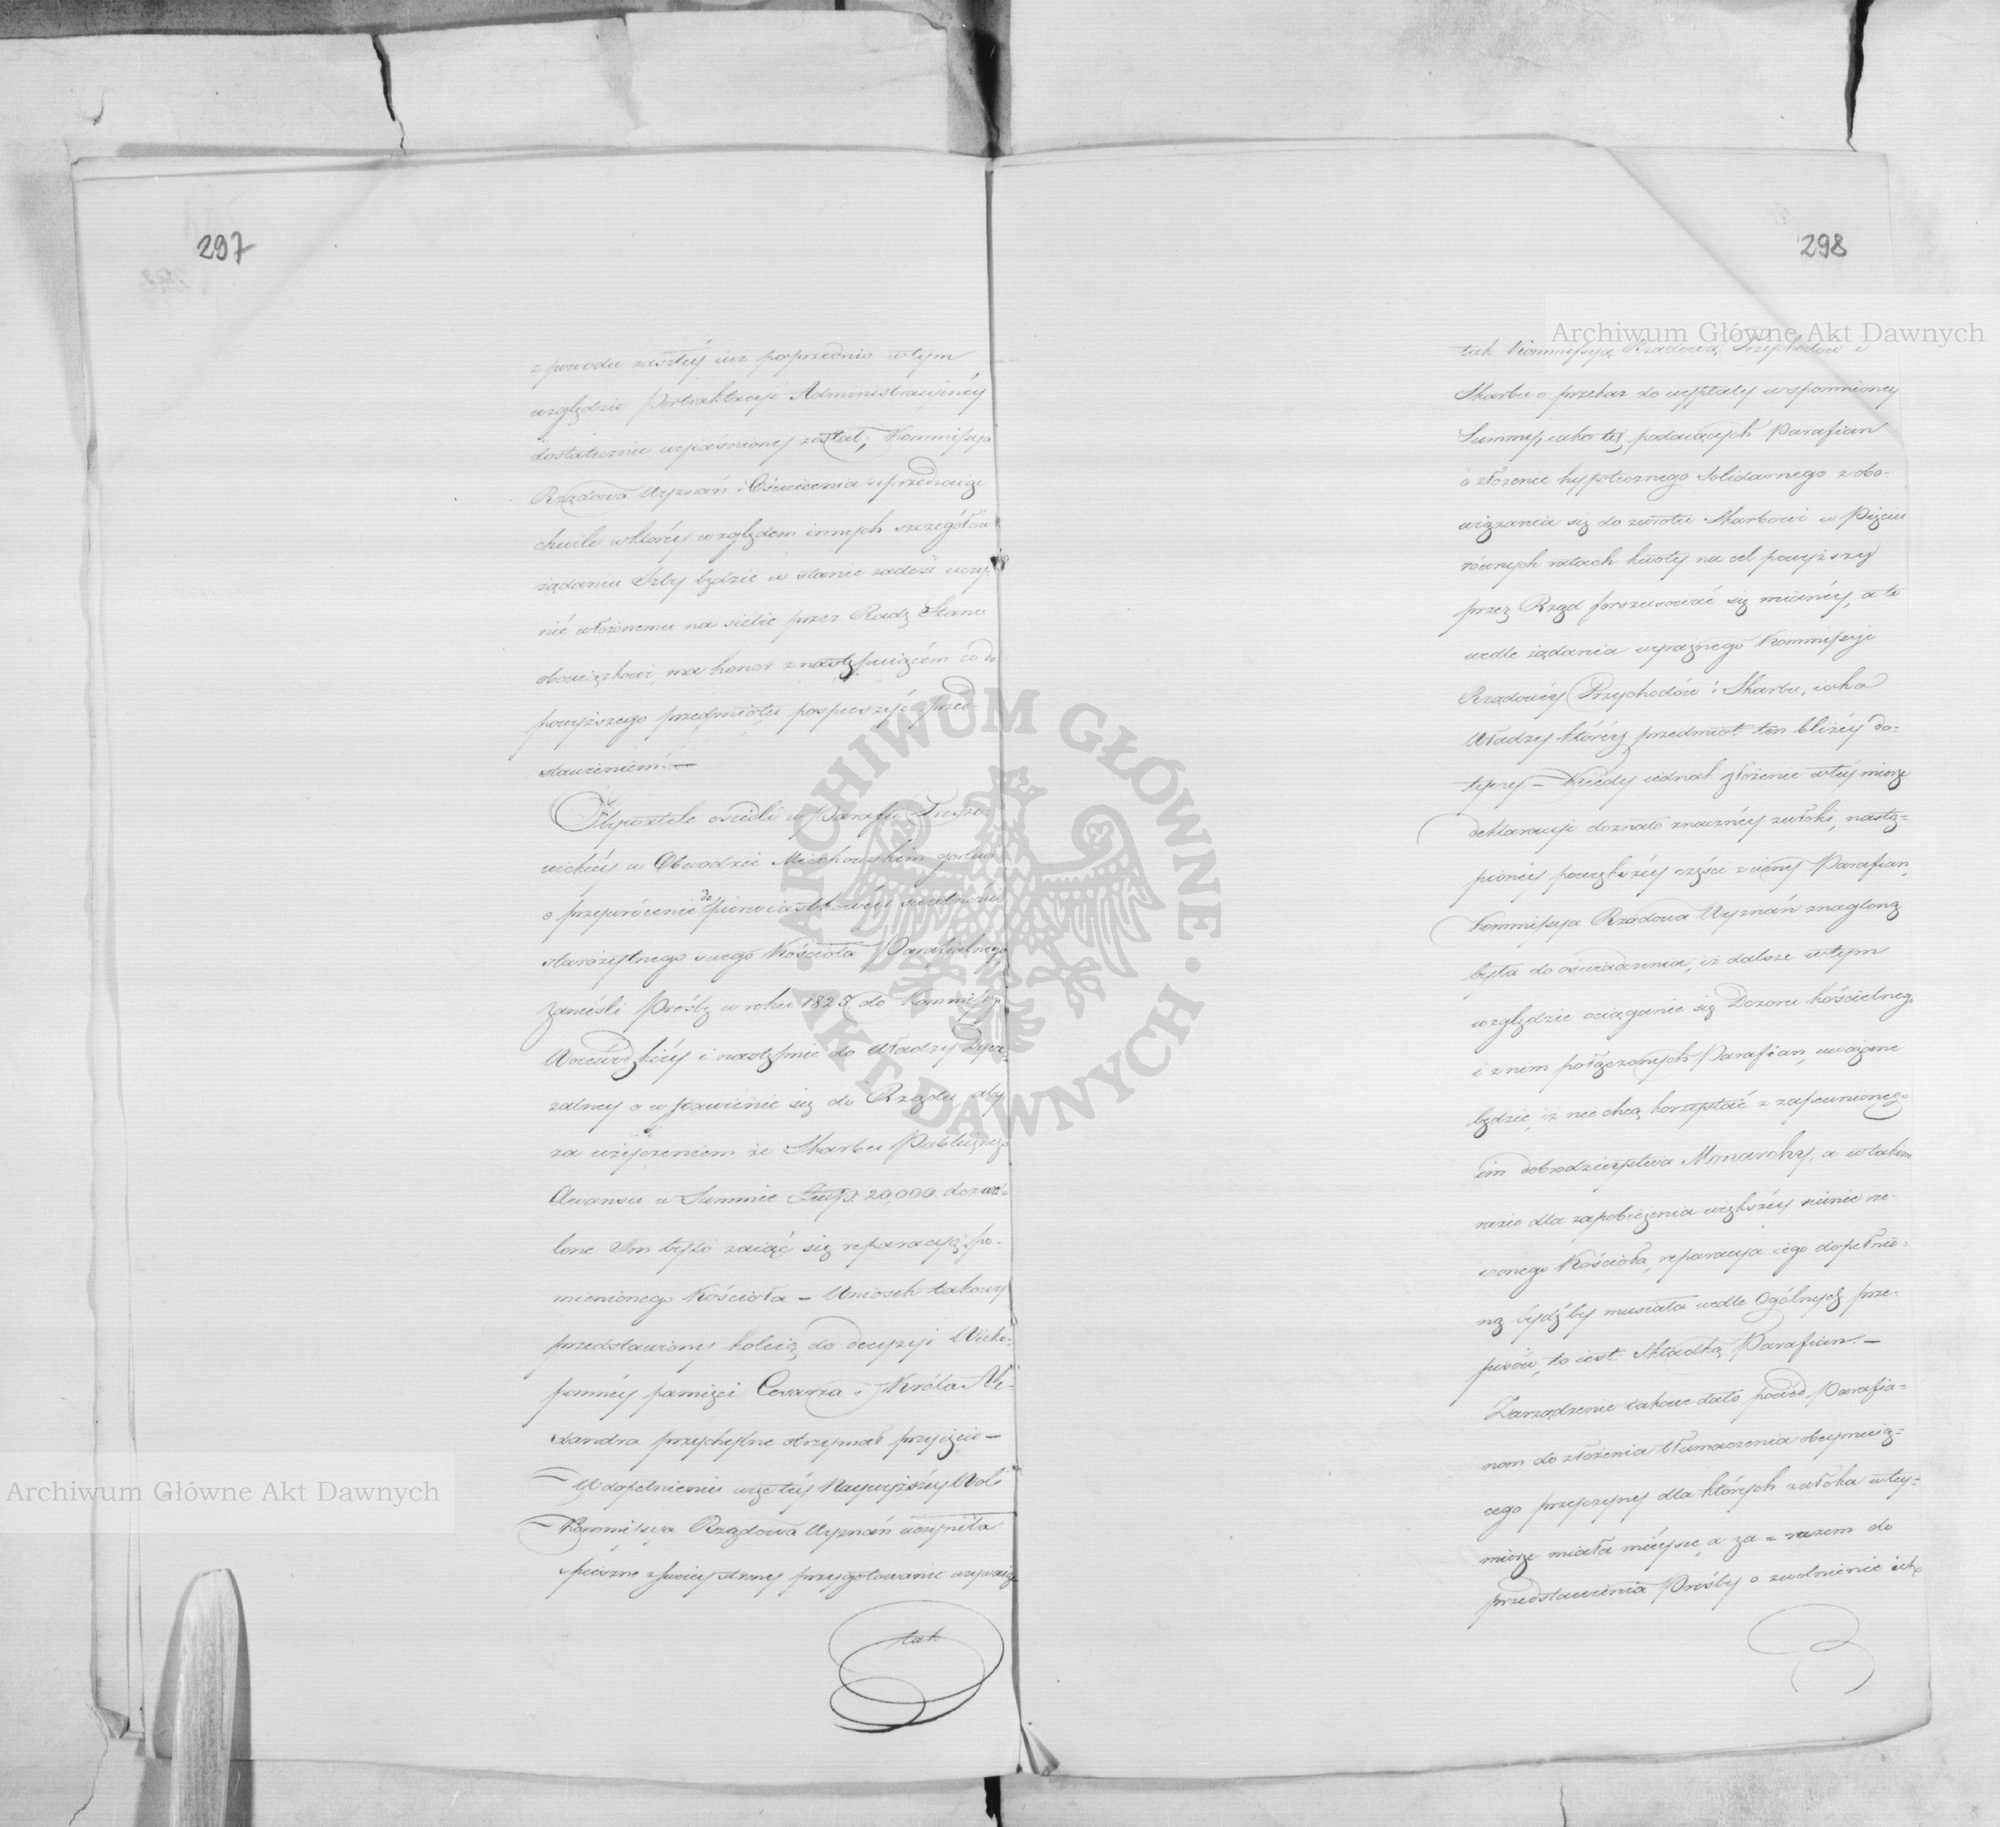 297
z powodu zaszłéy iuż poprzednio w tym
względzie Pertraktacyi Administracyinéy
dostatecznie wyiaśniony został, Kommissya
Rządowa Wyznań i Oświecenia uprzedzaiąc
chwilę w któréy względem innych szczegółów
żądaniu Izby będzie w stanie zadość uczy-
nić włożonemu na siebie przez Radę Stanu
obowiązkowi, ma honor z następuiącém co do
powyższego przedmiotu pospieszyć przed-
stawieniem. —
Obywatele osiedli w Parafii
wickiéy w Obwodzie Miechowskim gorliwi
o przywrócenie do pierwiastkowéy świetności
starożytnego swego Kościoła Parafialnego
zanieśli Prośbę w roku 1825 do Kommissyi
Woiewódzkiéy i następnie do Władzy Dyece-
zalney o wstawienie się do Rządu, aby
za użyczeniem ze Skarbu Publicznego
Awansu w Summie Złp. 20,000 dozwo-
lone Im było zaiąć się reparacyą po-
mienionego Kościoła — Wniosek takowy
przedstawiony koleią do decyzyi Wieko-
pomnéy pamięci Cesarza i Króla Ale-
xandra przychylne otrzymał przyięcie —
W dopełnieniu więc téy Naywyższéy Woli
Kommissya Rządowa Wyznań uczyniła
spieszne z swéy strony przygotowanie wzywaiąc
tak
298
tak Kommissyą Rządową Przychodów i
Skarbu o przekaz do wypłaty wspomnioney
Summy, iako też podaiących Parafian
o złożenie hypotecznego Solidarnego zobo-
wiązania się do zwrotu Skarbowi w Pięciu
równych ratach kwoty na cel powyższy
przez Rząd forszusować się mianéy, a to
wedle żądania wyraźnego Kommissyi
Rządowéy Przychodów i Skarbu, iako
Władzy któréy przedmiot ten bliżéy do-
tyczy — Kiedy iednak złożenie w téy mierze
deklaracyi doznało znacznéy zwłoki, nastą-
pionéy powiększéy części z winy Parafian,
Kommissya Rządowa Wyznań znagloną
była do oświadczenia, iż dalsze w tym
względzie ociąganie się Dozoru kościelnego
i z nim połączonych Parafian, uważane
będzie, iż nie chcą korzystać z zapewnionego
im dobrodzieystwa Monarchy, a w takim
razie dla zapobieżenia większéy ruinie rze-
czonego Kościoła, reparacya iego dopełnio-
ną bydźby musiała wedle Ogólnych prze-
pisów, to iest: Składką Parafian. —
Zarządzenie takowe dało powód Parafia-
nom do złożenia tłumaczenia obeymuią-
cego przyczyny dla których zwłoka w téy-
mierze miała mieysce, a za-razem do
przedstawienia Prośby o zwolnienie ich